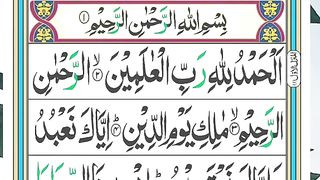 بِسْمِ اللهِ الرَّحْمٰنِ الرَّحِيْمِ ۝۱
اَلْحَمْدُ لِلّٰهِ رَبِّ الْعٰلَمِيْنَ ۙ۝۲ الرَّحْمٰنِ
الرَّحِيْمِ ۙ۝۳ مٰلِكِ يَوْمِ الدِّيْنِ ؕ۝۴ اِيَّاكَ نَعْبُدُ